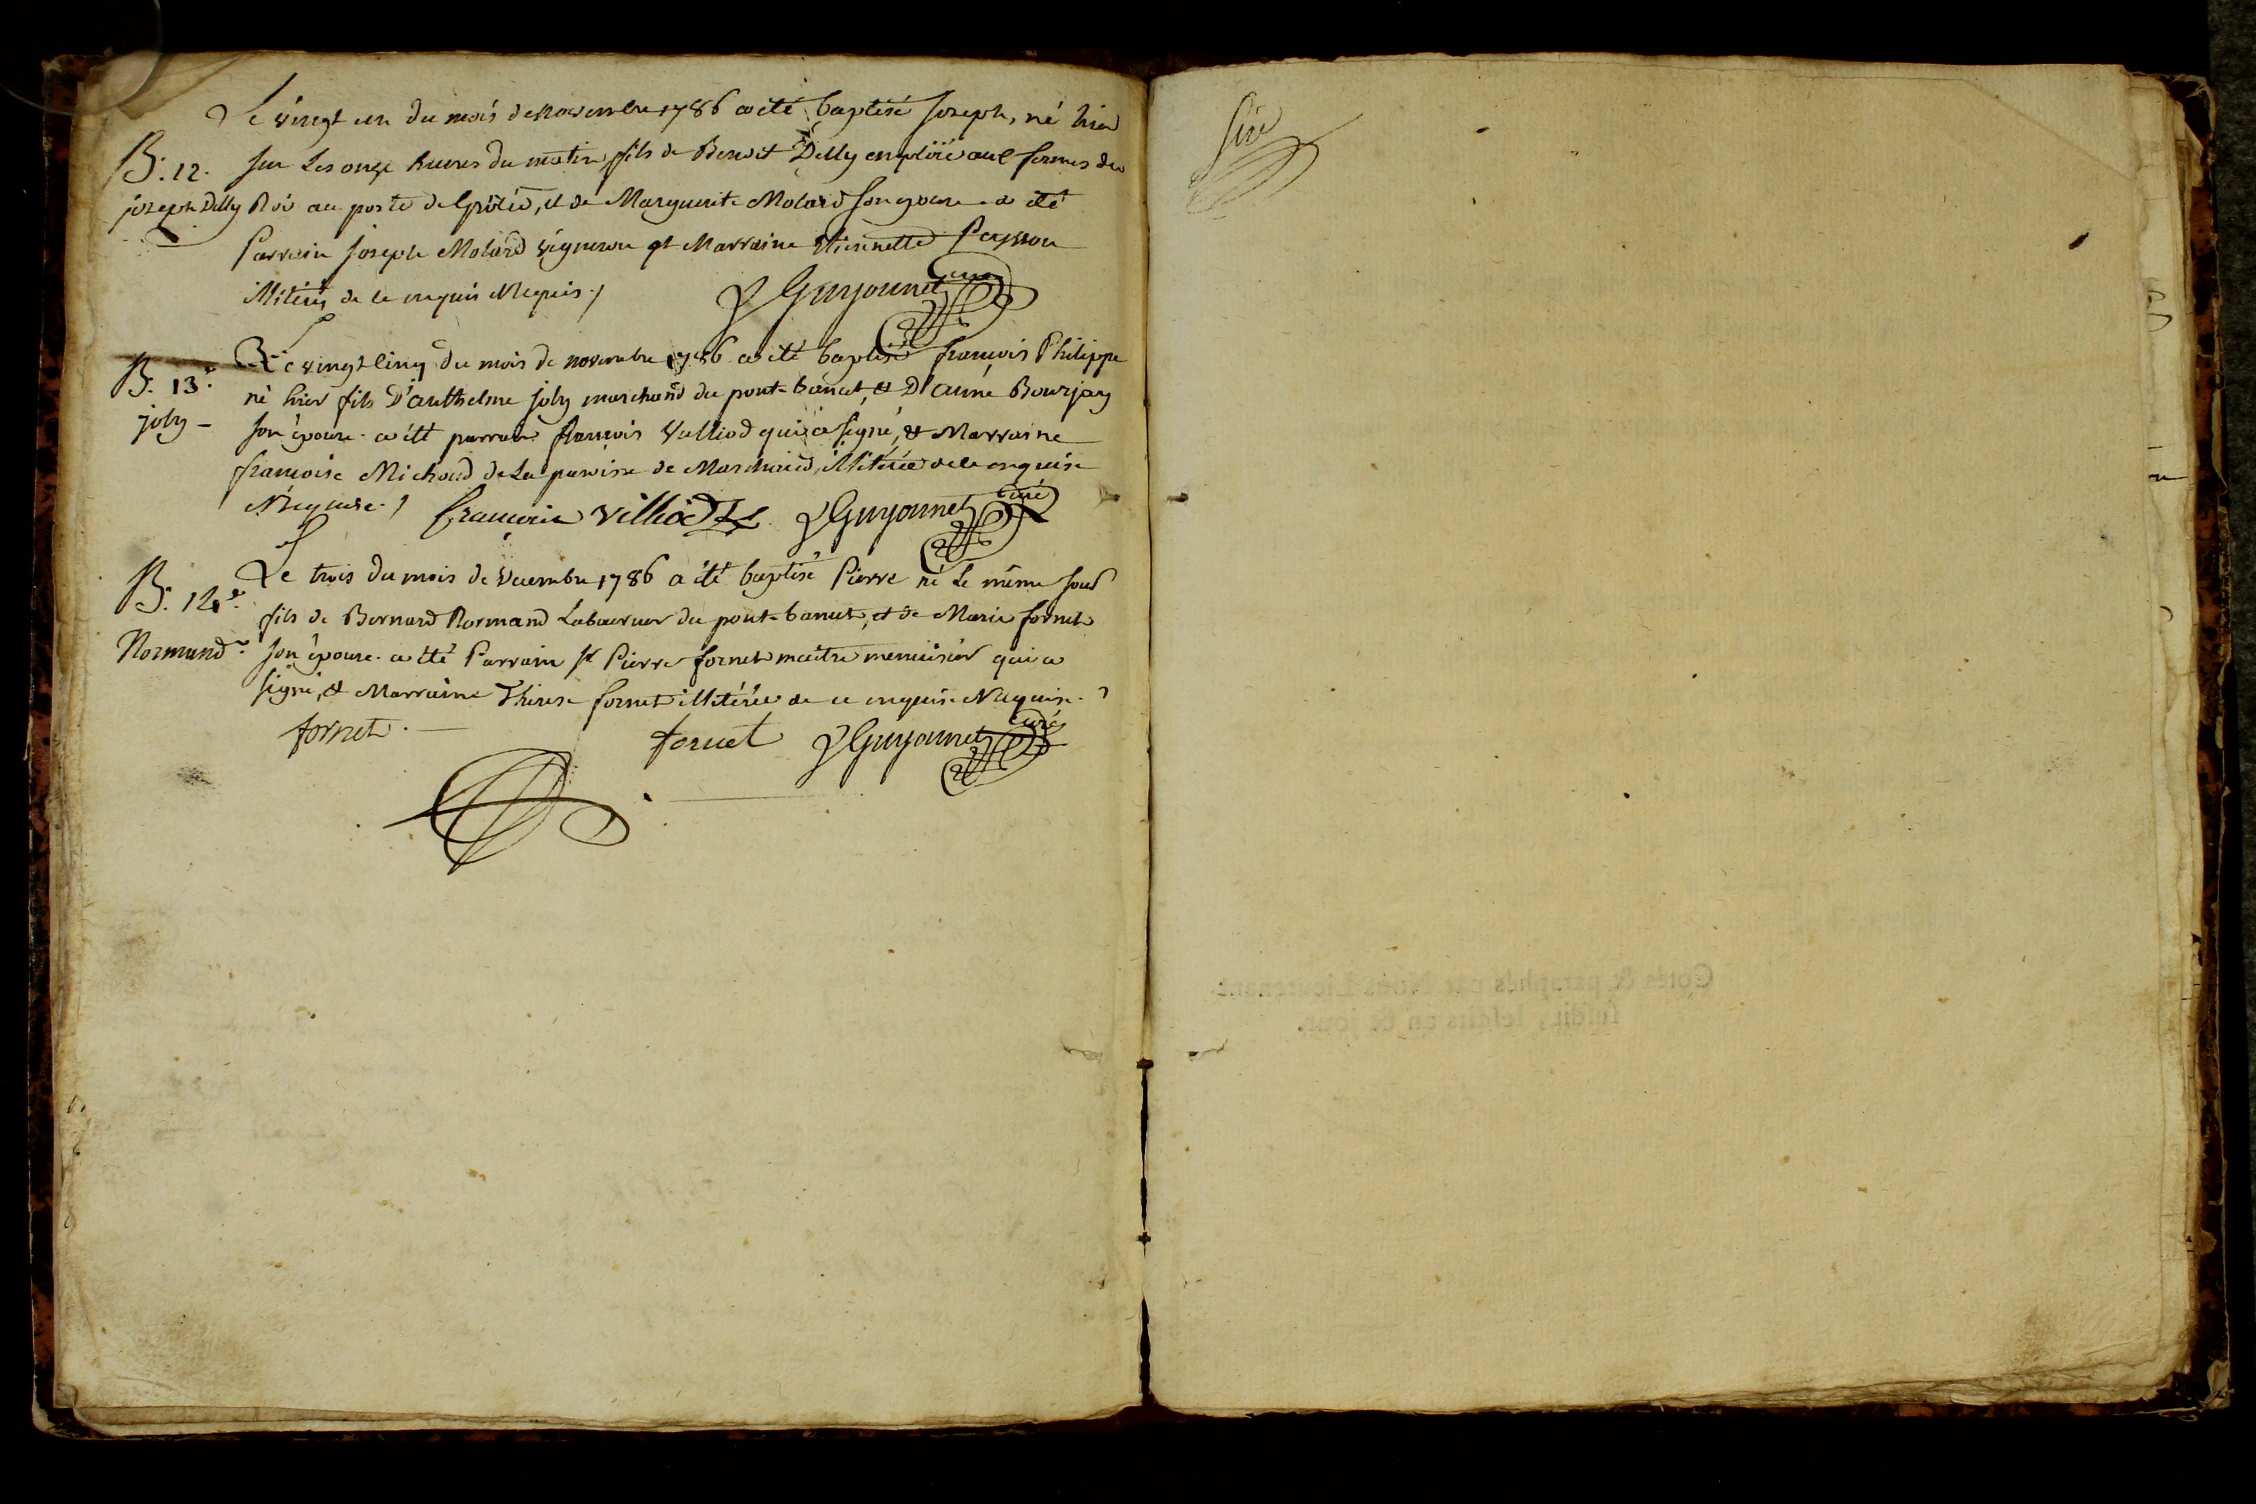 Le vingt un du mois de novembre 1786 a été baptisé Joseph, né hier
B. 12. sur les onze heures du matin fils de Benoit Delly emploïé aux fermes du
joseph Delly Roi au poste de et de Marguerite Molard son epouse a été
Parrain Joseph Molard vigneron et Marraine Etiennette Peysson
illitérés de ce enquis Requis.
Guyonnet curé
Le vingt cinq du mois de novembre 1786 a été baptisé françois Philippe
B. 13e né hier fils D'anthelme joly marchand du pont-banet, & D'Aimé Bourjay
joly - son épouse. a été parrain françois Valliod qui a signé, & Marraine
françoise Michoud de La paroisse de illitérée de ce enquise
Requise.
françois Villiod Guyonnet curé
Le trois du mois de Decembre 1786 a été baptisé Pierre né Le même jour
B. 14e fils de Bernard Normand Laboureur du pont-banet, et de Marie fornet
Normand son épouse. a été Parrain sr Pierre fornet maitre menuisier qui a
signé, & Marraine Therese fornet illitérée de ce enquise Requise.
fornet. fornet Guyonnet curé
Six
Cotés & paraphés par Nous Lieutenant
susdit, lesdits an & jour.